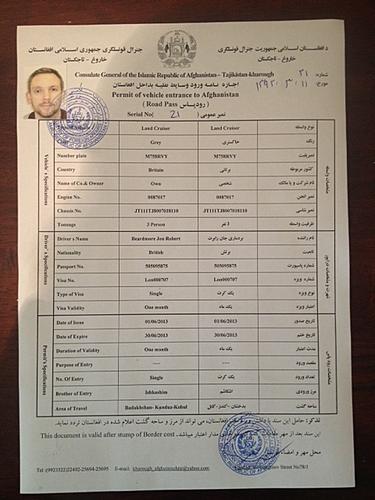 جنرال قونسلگری جمهوری اسلامی افغانستان
خاروغ - تاجکستان
دافغانستان اسلامی جمهوریت جنرال قونسلگری
خاروغ - تاجکستان
Consulate General of the Islamic Republic of Afghanistan - Tajikistan-kharough
شماره: ۲۱
اجازه نامه ورود وسایط نقلیه بداخل افغانستان
Permit of vehicle entrance to Afghanistan
( Road Pass رودپاس )
Serial No( 21 ) نمبر عمومی
Land Cruiser Land Cruiser نوع واسطه
Grey خاکستری رنگ
Number plate M758RVY M758RVY نمبرپلیت
Country Britain برتانی کشور مربوطه
Name of Co.& Owner Own شخصی نام شرکت و یا مالک
Engine No. 0087017 0087017 نمبر انجن
Chassis No. JT111TJ8007018110 JT111TJ8007018110 نمبر شاسی
Tonnage 3 Person 3 نفر ظرفیت واسطه
Vehicle's Specifications
Driver's Name Beardmore Jon Robert نام راننده
Nationality British برتش تابعیت
Passport No. 505095875 505095875 شماره پاسپورت
Visa No. Lon000707 Lon000707 شماره ویزه
Type of Visa Single یک کرت نوع ویزه
Visa Validity One month یک ماه اعتبار ویزه
Driver's Specifications
Date of Issue 01/06/2013 01/06/2013 تاریخ صدور
Date of Expire 30/06/2013 30/06/2013 تاریخ ختم
Duration of Validity One month یک ماه مدت اعتبار
Purpose of Entry ---- ---- مقصد ورود
No. Of Entry Single یک کرت تعداد ورود
Brother of Entry Ishkashim اشکاشم مرز ورودی
Area of Travel Badakhshan- Kunduz-Kabul بدخشان -کندز- کابل ساحه گشت
Permit's Specifications
This document is valid after stump of Border cost
محل مهر و امضاء
E-mail: kharough_afghanconsulate@yahoo.com